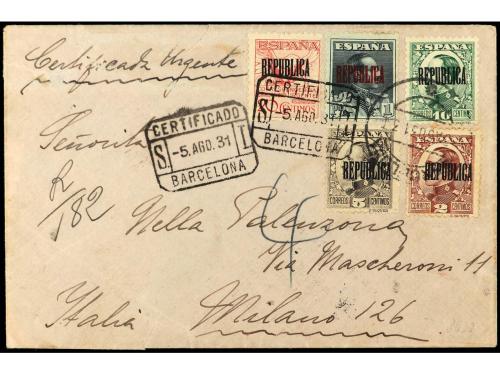 Certificada Urgente
ESPAÑA
REPUBLICA
CENTIMOS
ESPAÑA
REPUBLICA
1
ESPAÑA
REPUBLICA
10
CERTIFICADO
S. -5. AGO. 31 I.
BARCELONA
-5. AGO. 31
BARCELONA
REPUBLICA
CORREOS 5 CENTIMOS
REPUBLICA
CORREOS 2 CENTIMOS
Señorita
R/182
Nella Palenzona
4
Via Mascheroni 11
Italia
Milano 126